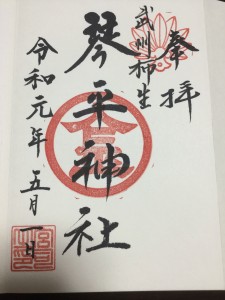 奉拝
武州柿生
琴平神社
令和元年五月一日